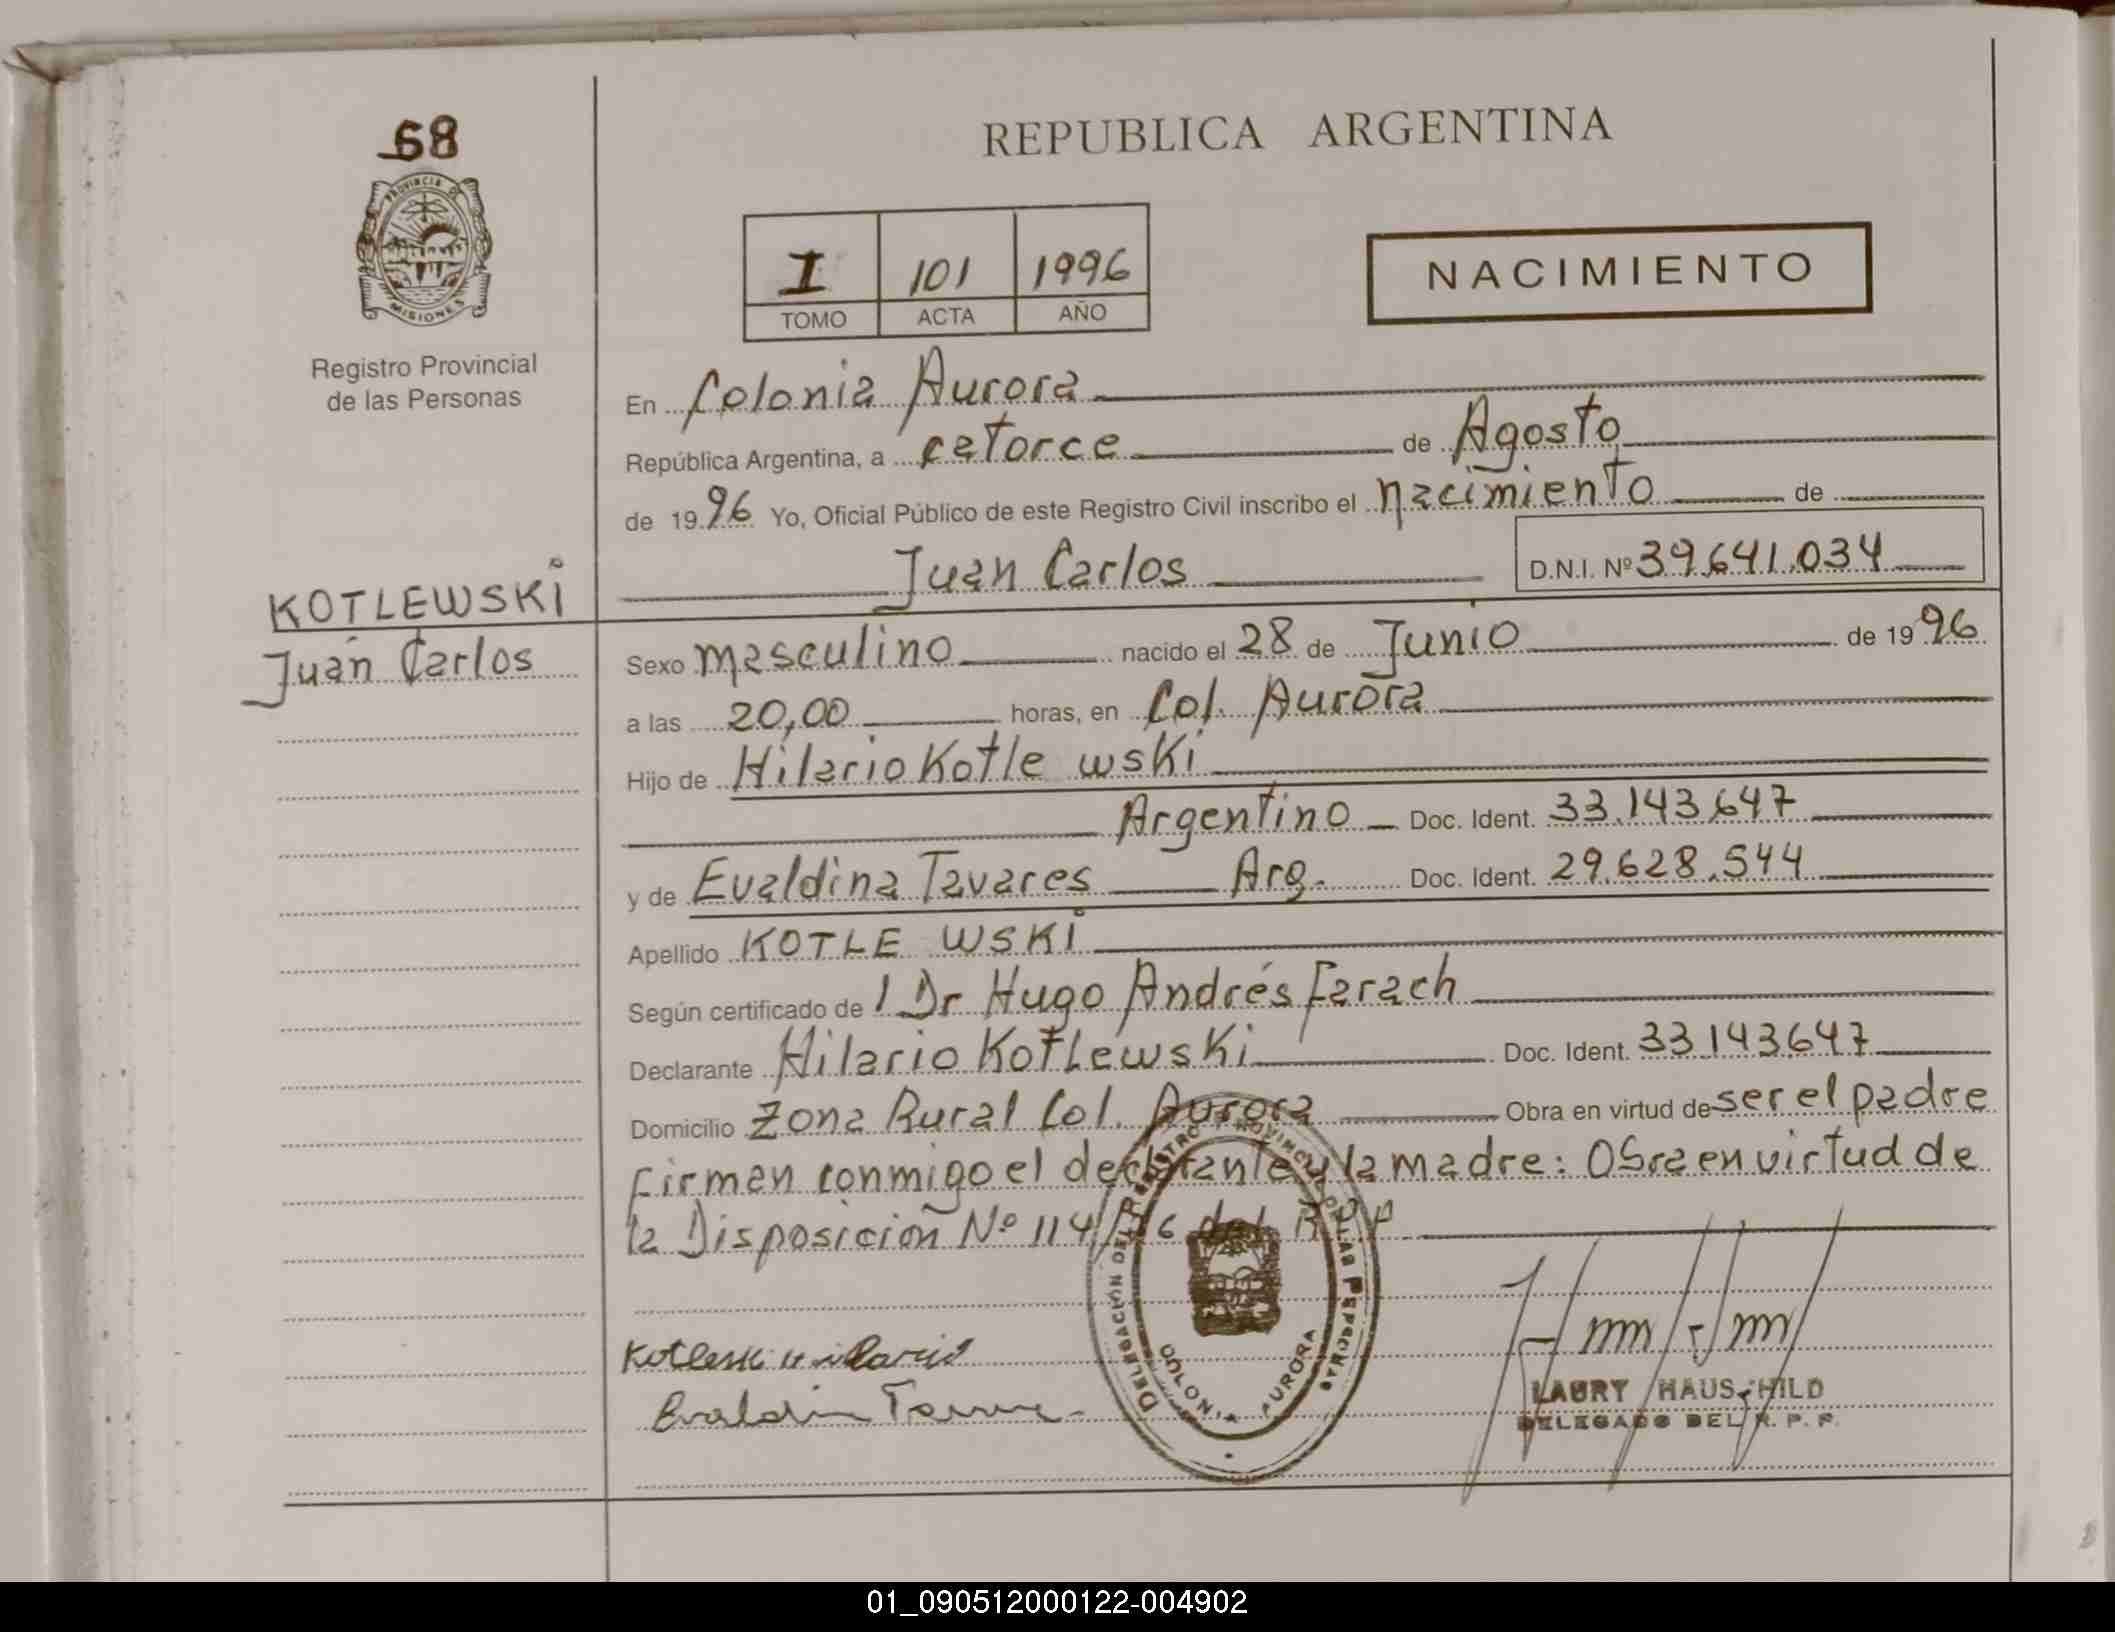 68
PROVINCIA DE
MISIONES
Registro Provincial
de las Personas
KOTLEWSKI
Juan Carlos
REPUBLICA ARGENTINA
I 101 1996
TOMO ACTA AÑO
NACIMIENTO
En Colonia Aurora
República Argentina, a catorce de Agosto
de 1996 Yo, Oficial Público de este Registro Civil inscribo el nacimiento de
Juan Carlos D.N.I. Nº 39.641.034
Sexo masculino nacido el 28 de Junio de 1996
a las 20,00 horas, en Col. Aurora
Hijo de Hilario Kotle wski
Argentino Doc. Ident. 33.143.647
y de Evaldina Tavares Arg. Doc. Ident. 29.628.544
Apellido KOTLE WSKI
Según certificado de 1 Dr Hugo Andrés Farach
Declarante Hilario Kotlewski Doc. Ident. 33143647
Domicilio Zona Rural Col. Aurora Obra en virtud de ser el padre
Firman conmigo el declarante y la madre: Obra en virtud de
la Disposición Nº 114/96 del R.P.P
DELEGACIÓN DEL REGISTRO PROVINCIAL DE LAS PERSONAS
COLONIA AURORA
LAURY HAUSCHILD
DELEGADO DEL R. P. P.
01_090512000122-004902